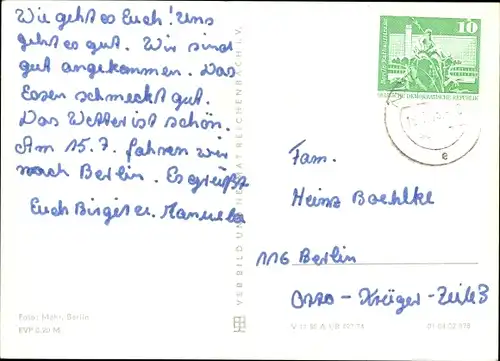 Wie geht es Euch! Uns
geht es gut. Wir sind
gut angekommen. Das
Essen schmeckt gut.
Das Wetter ist schön.
Am 15.7. fahren wir
nach Berlin. Es grüßt
Euch Birgit u. Manuela
Foto: Mohr, Berlin
EVP 0,20 M
VEB BILD UND HEIMAT REICHENBACH I. V.
10
DEUTSCHE DEMOKRATISCHE REPUBLIK
Fam.
Heinz Boehlke
116 Berlin
Otto-Krüger-Zeile 3